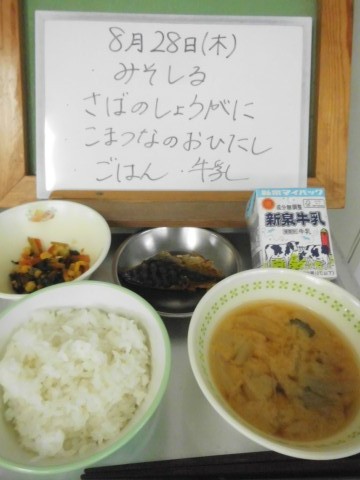 8月28日(木)
みそしる
さばのしょうがに
こまつなのおひたし
ごはん・牛乳
新泉牛乳
牛乳